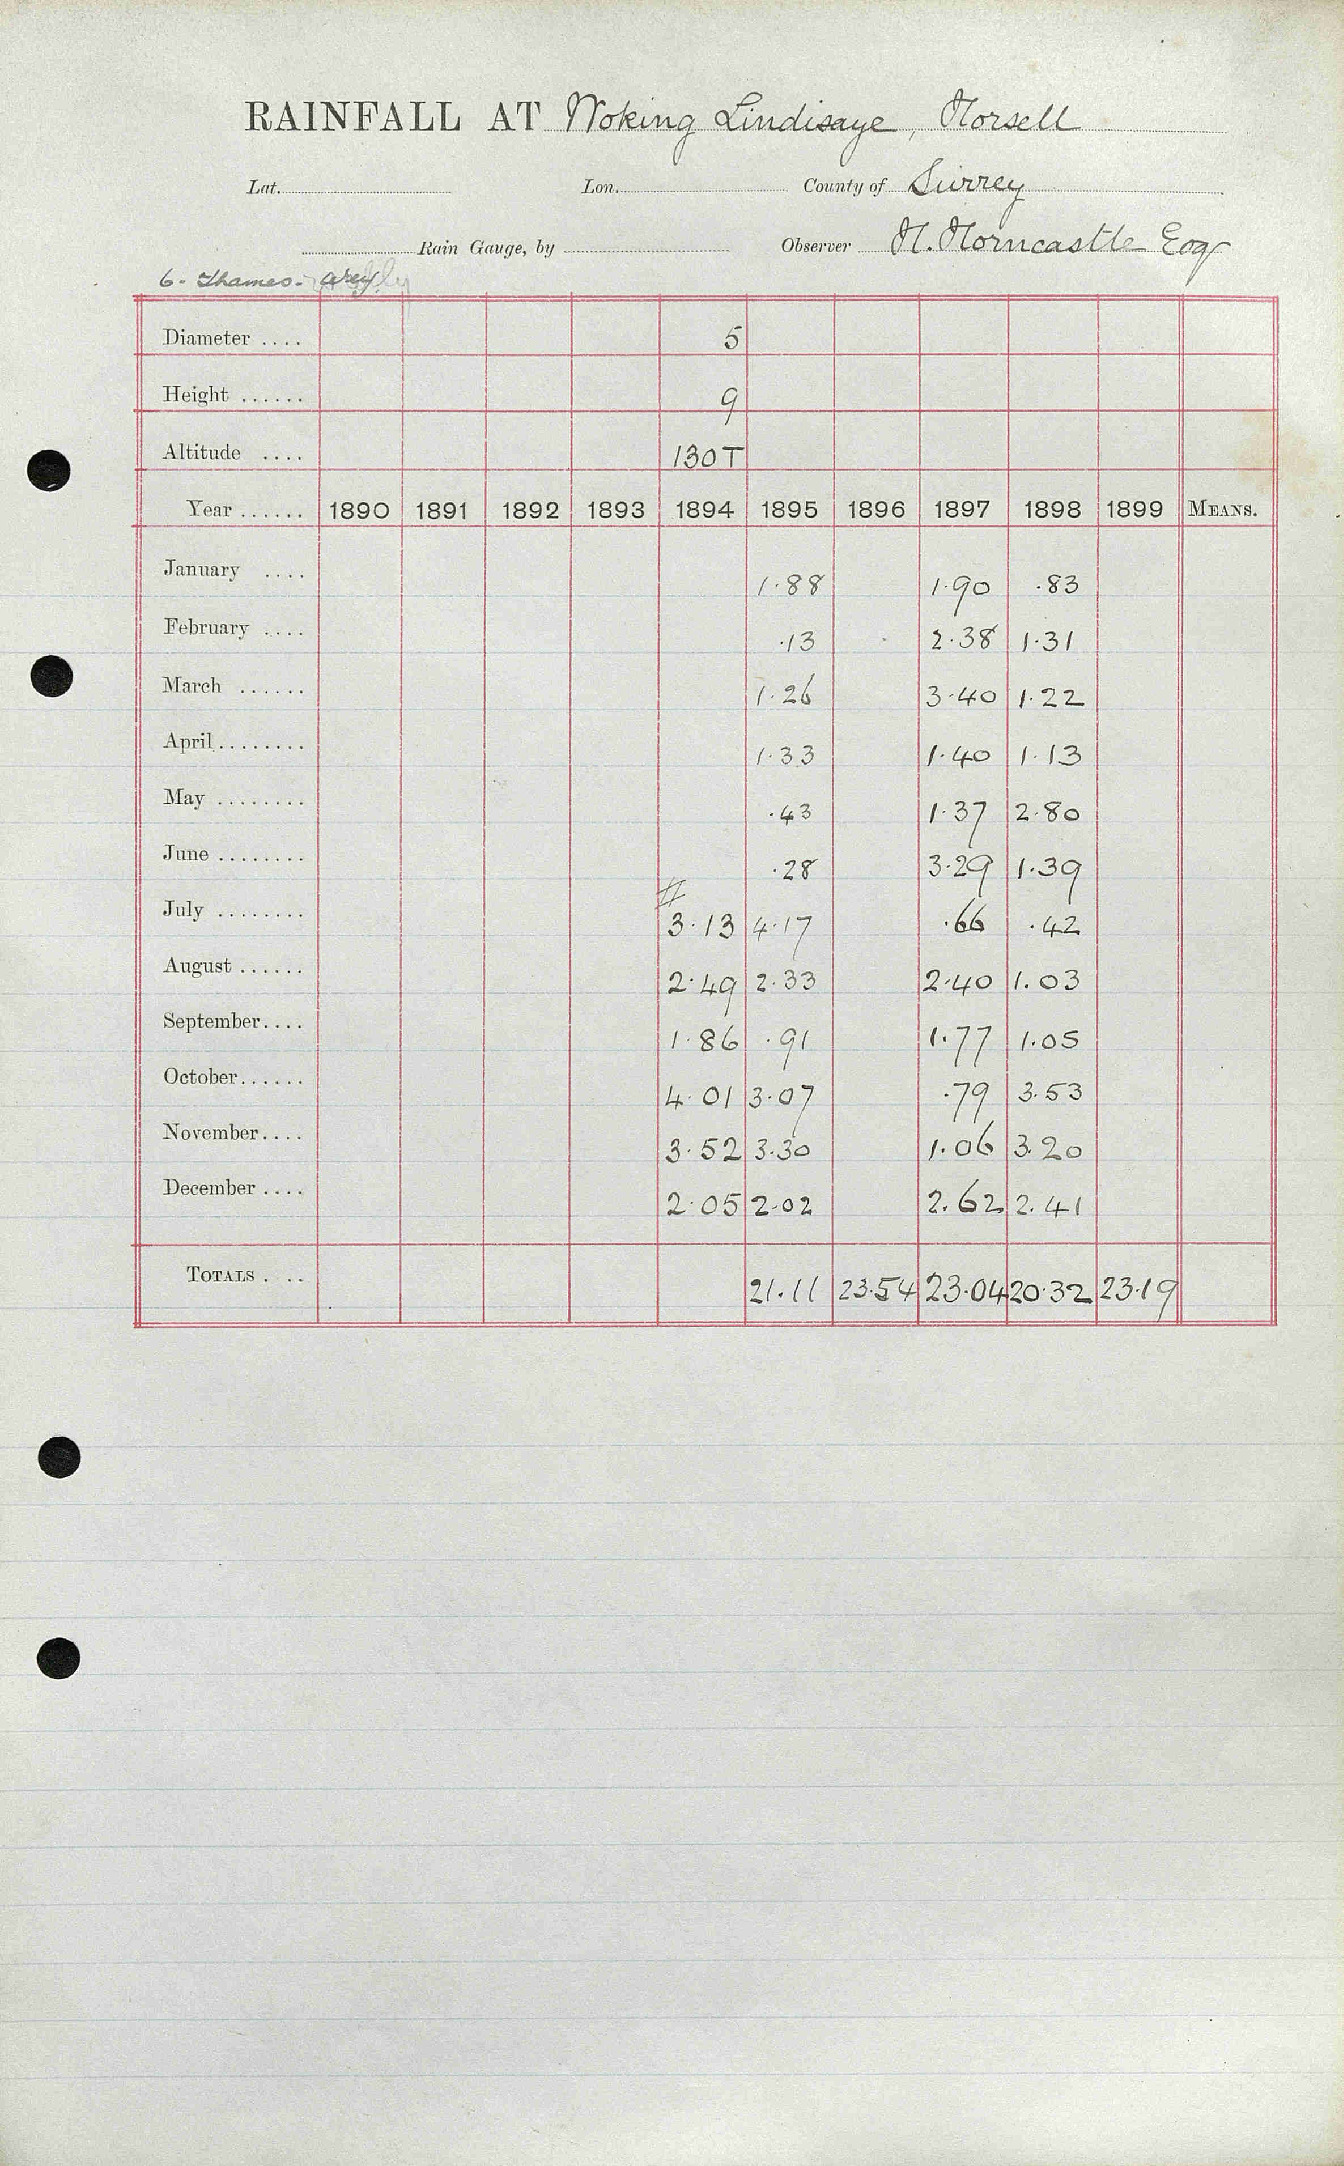 RAINFALL AT Woking Lindisaye, Horsell
Lat. Lon. County of Surrey
Rain Gauge, by Observer H. Horncastle Esq
6. Thames. Wey
Diameter .... 5
Height ...... 9
Altitude .... 130T
Year ...... 1890 1891 1892 1893 1894 1895 1896 1897 1898 1899 MEANS.
January .... 1.88 1.90 .83
February .... .13 2.38 1.31
March ...... 1.26 3.40 1.22
April........ 1.33 1.40 1.13
May ........ .43 1.37 2.80
June ........ .28 3.29 1.39
July ........ # 3.13 4.17 .66 .42
August ...... 2.49 2.33 2.40 1.03
September.... 1.86 .91 1.77 1.05
October...... 4.01 3.07 .79 3.53
November.... 3.52 3.30 1.06 3.20
December .... 2.05 2.02 2.62 2.41
TOTALS . .. 21.11 23.54 23.04 20.32 23.19